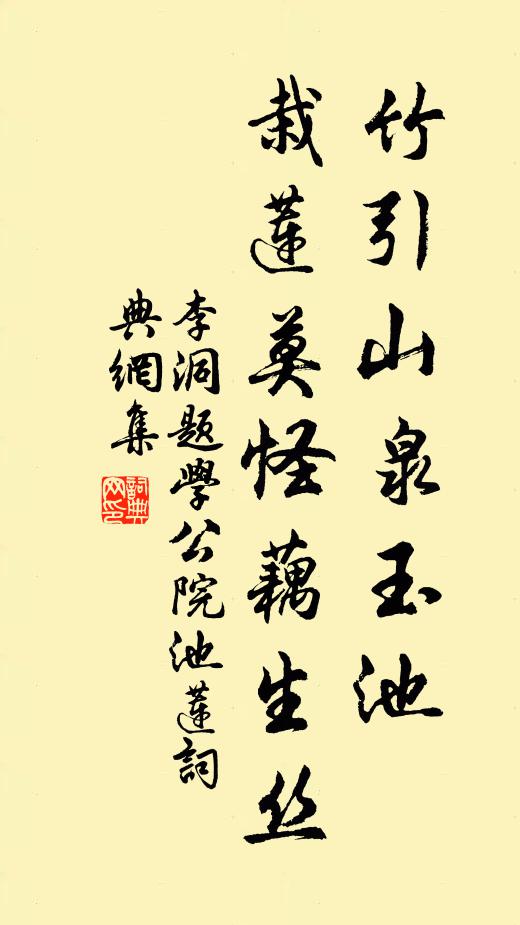 竹引山泉玉池
栽蓮莫怪藕生丝
李洞題學公院池蓮詞
典網集
詞典网印